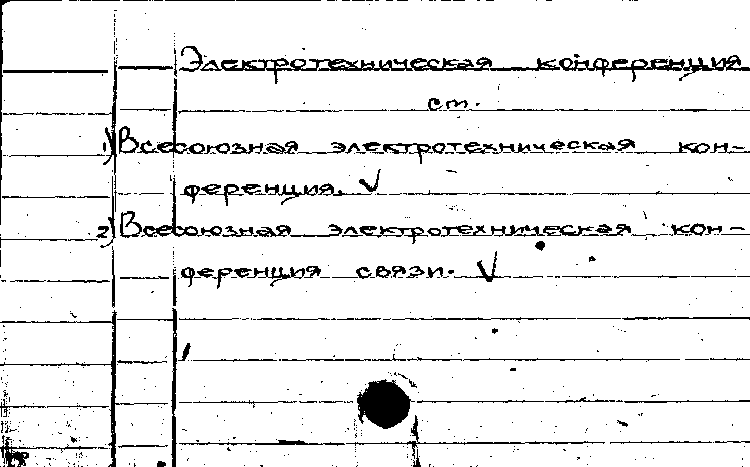 Электротехническая конференция
ст.
1) Всесоюзная электротехническая кон-
ференция. ✓
2) Всесоюзная электротехническая кон-
ференция связи. ✓